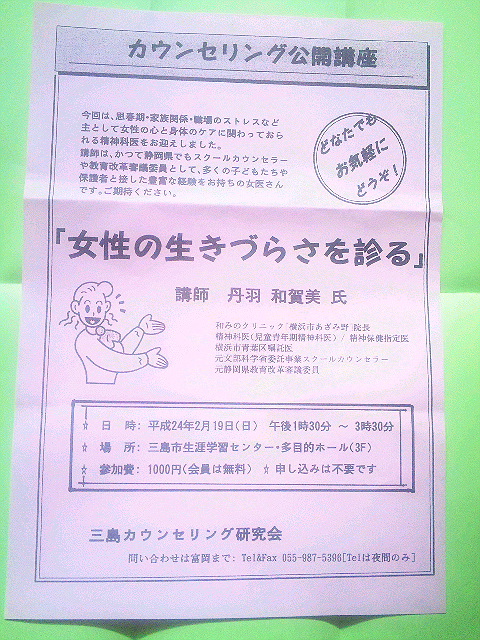 カウンセリング公開講座
今回は、思春期・家族関係・職場のストレスなど
主として女性の心と身体のケアに関わっておら
れる精神科医をお迎えしました。
講師は、かつて静岡県でもスクールカウンセラー
や教育改革審議委員として、多くの子どもたちや
保護者と接した豊富な経験をお持ちの女医さん
です。ご期待ください。
どなたでも
お気軽に
どうぞ！
「女性の生きづらさを診る」
講師 丹羽 和賀美 氏
和みのクリニック「横浜市あざみ野」院長
精神科医(児童青年期精神科医) / 精神保健指定医
横浜市青葉区嘱託医
元文部科学省委託事業スクールカウンセラー
元静岡県教育改革審議委員
☆ 日 時: 平成24年2月19日(日) 午後1時30分 ～ 3時30分
☆ 場 所: 三島市生涯学習センター・多目的ホール(3F)
☆ 参加費: 1000円(会員は無料) ☆ 申し込みは不要です
三島カウンセリング研究会
問い合わせは富岡まで: Tel&Fax 055-987-5396[Telは夜間のみ]